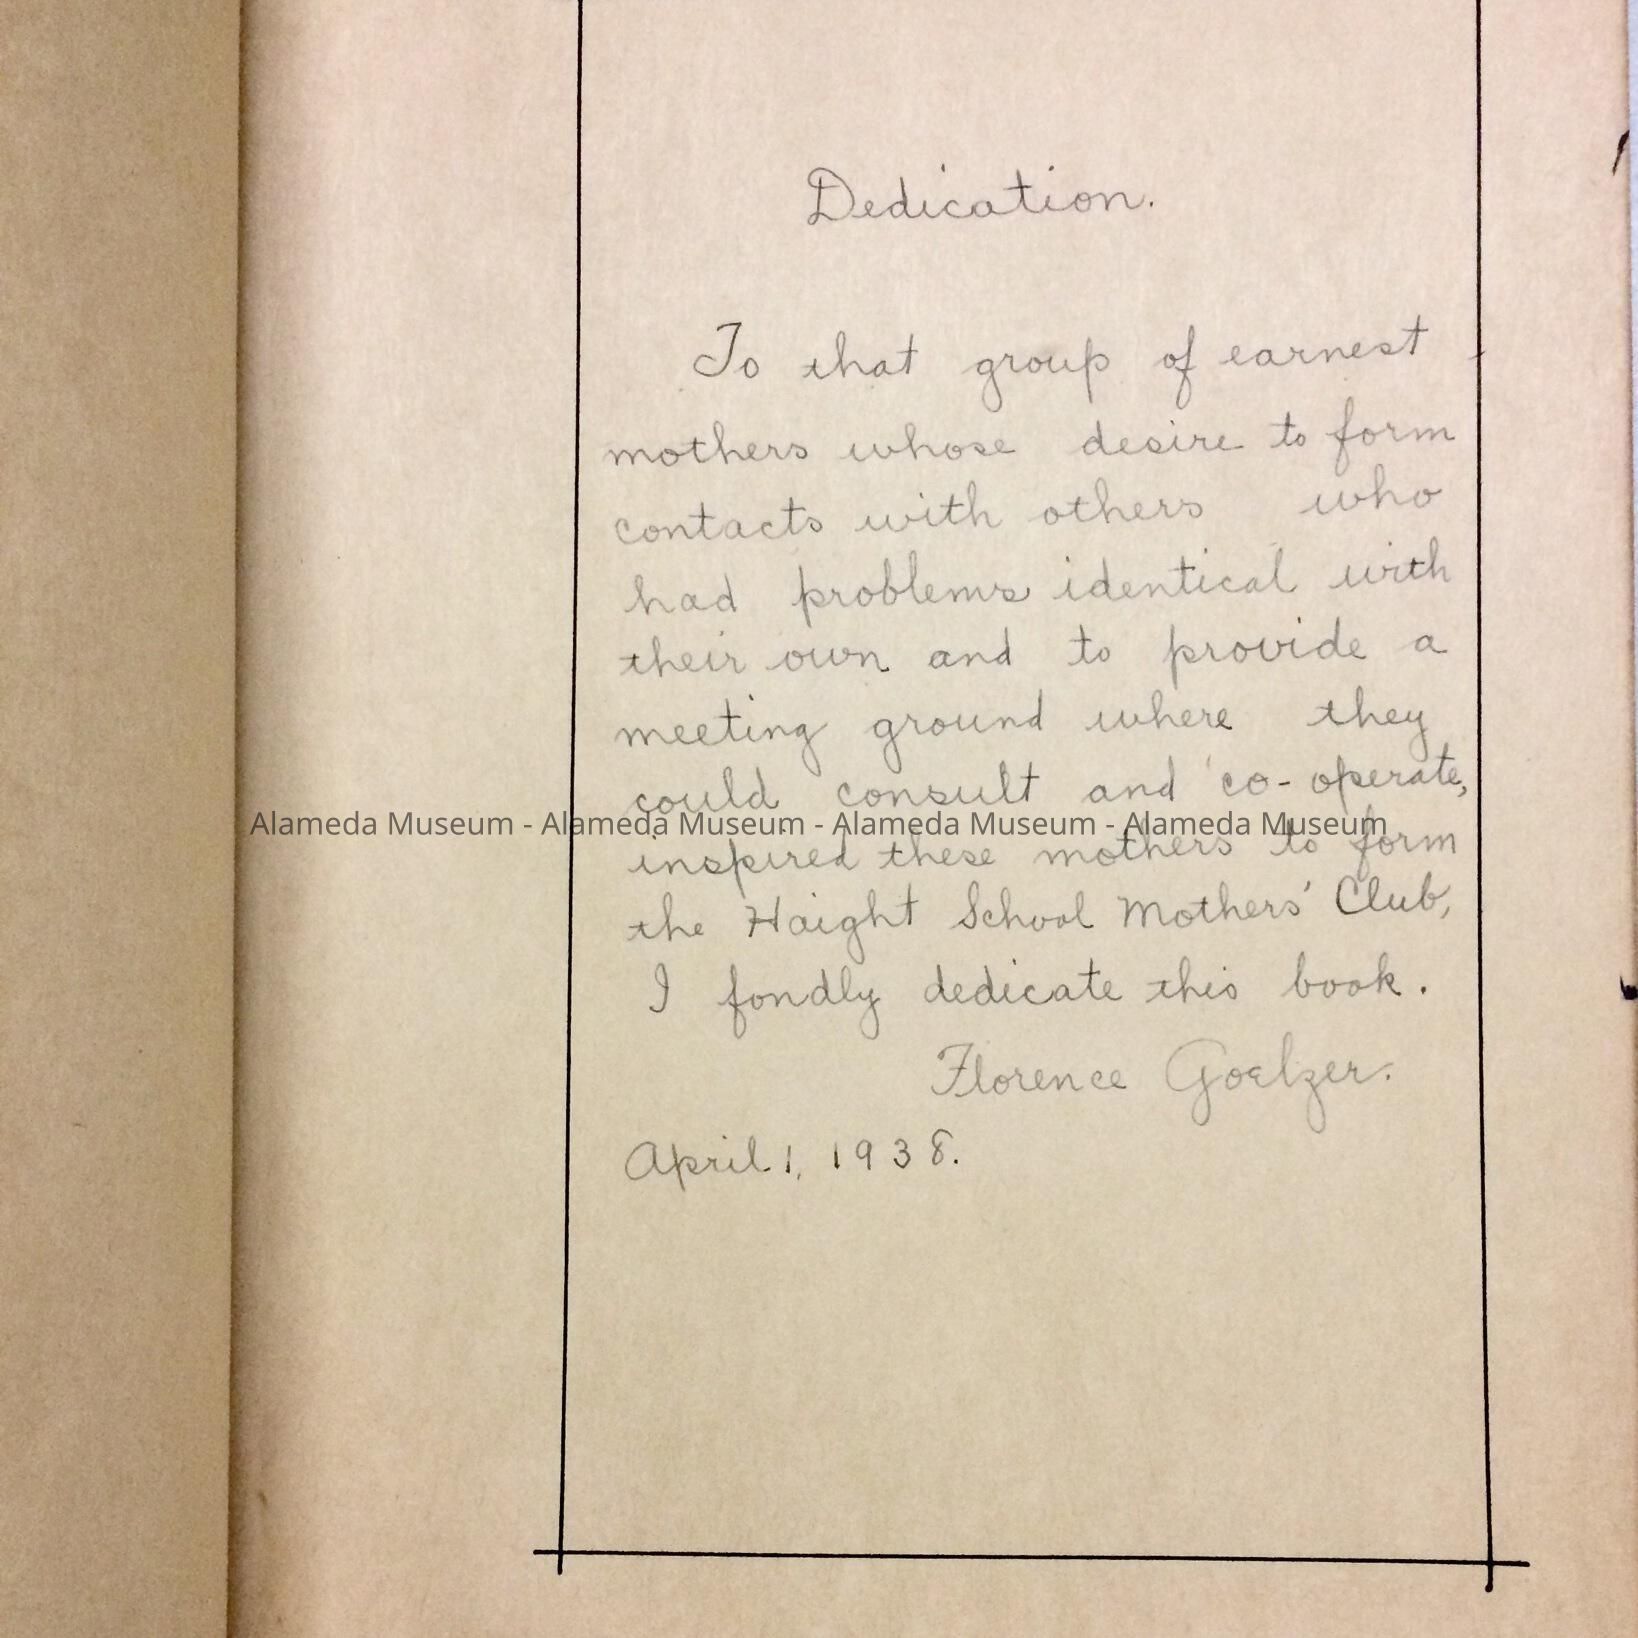 Dedication.
To that group of earnest
mothers whose desire to form
contacts with others who
had problems identical with
their own and to provide a
meeting ground where they
could consult and co-operate,
Alameda Museum - Alameda Museum - Alameda Museum - Alameda Museum
inspired these mothers to form
the Haight School Mothers' Club,
I fondly dedicate this book.
Florence Goelzer.
April 1, 1938.